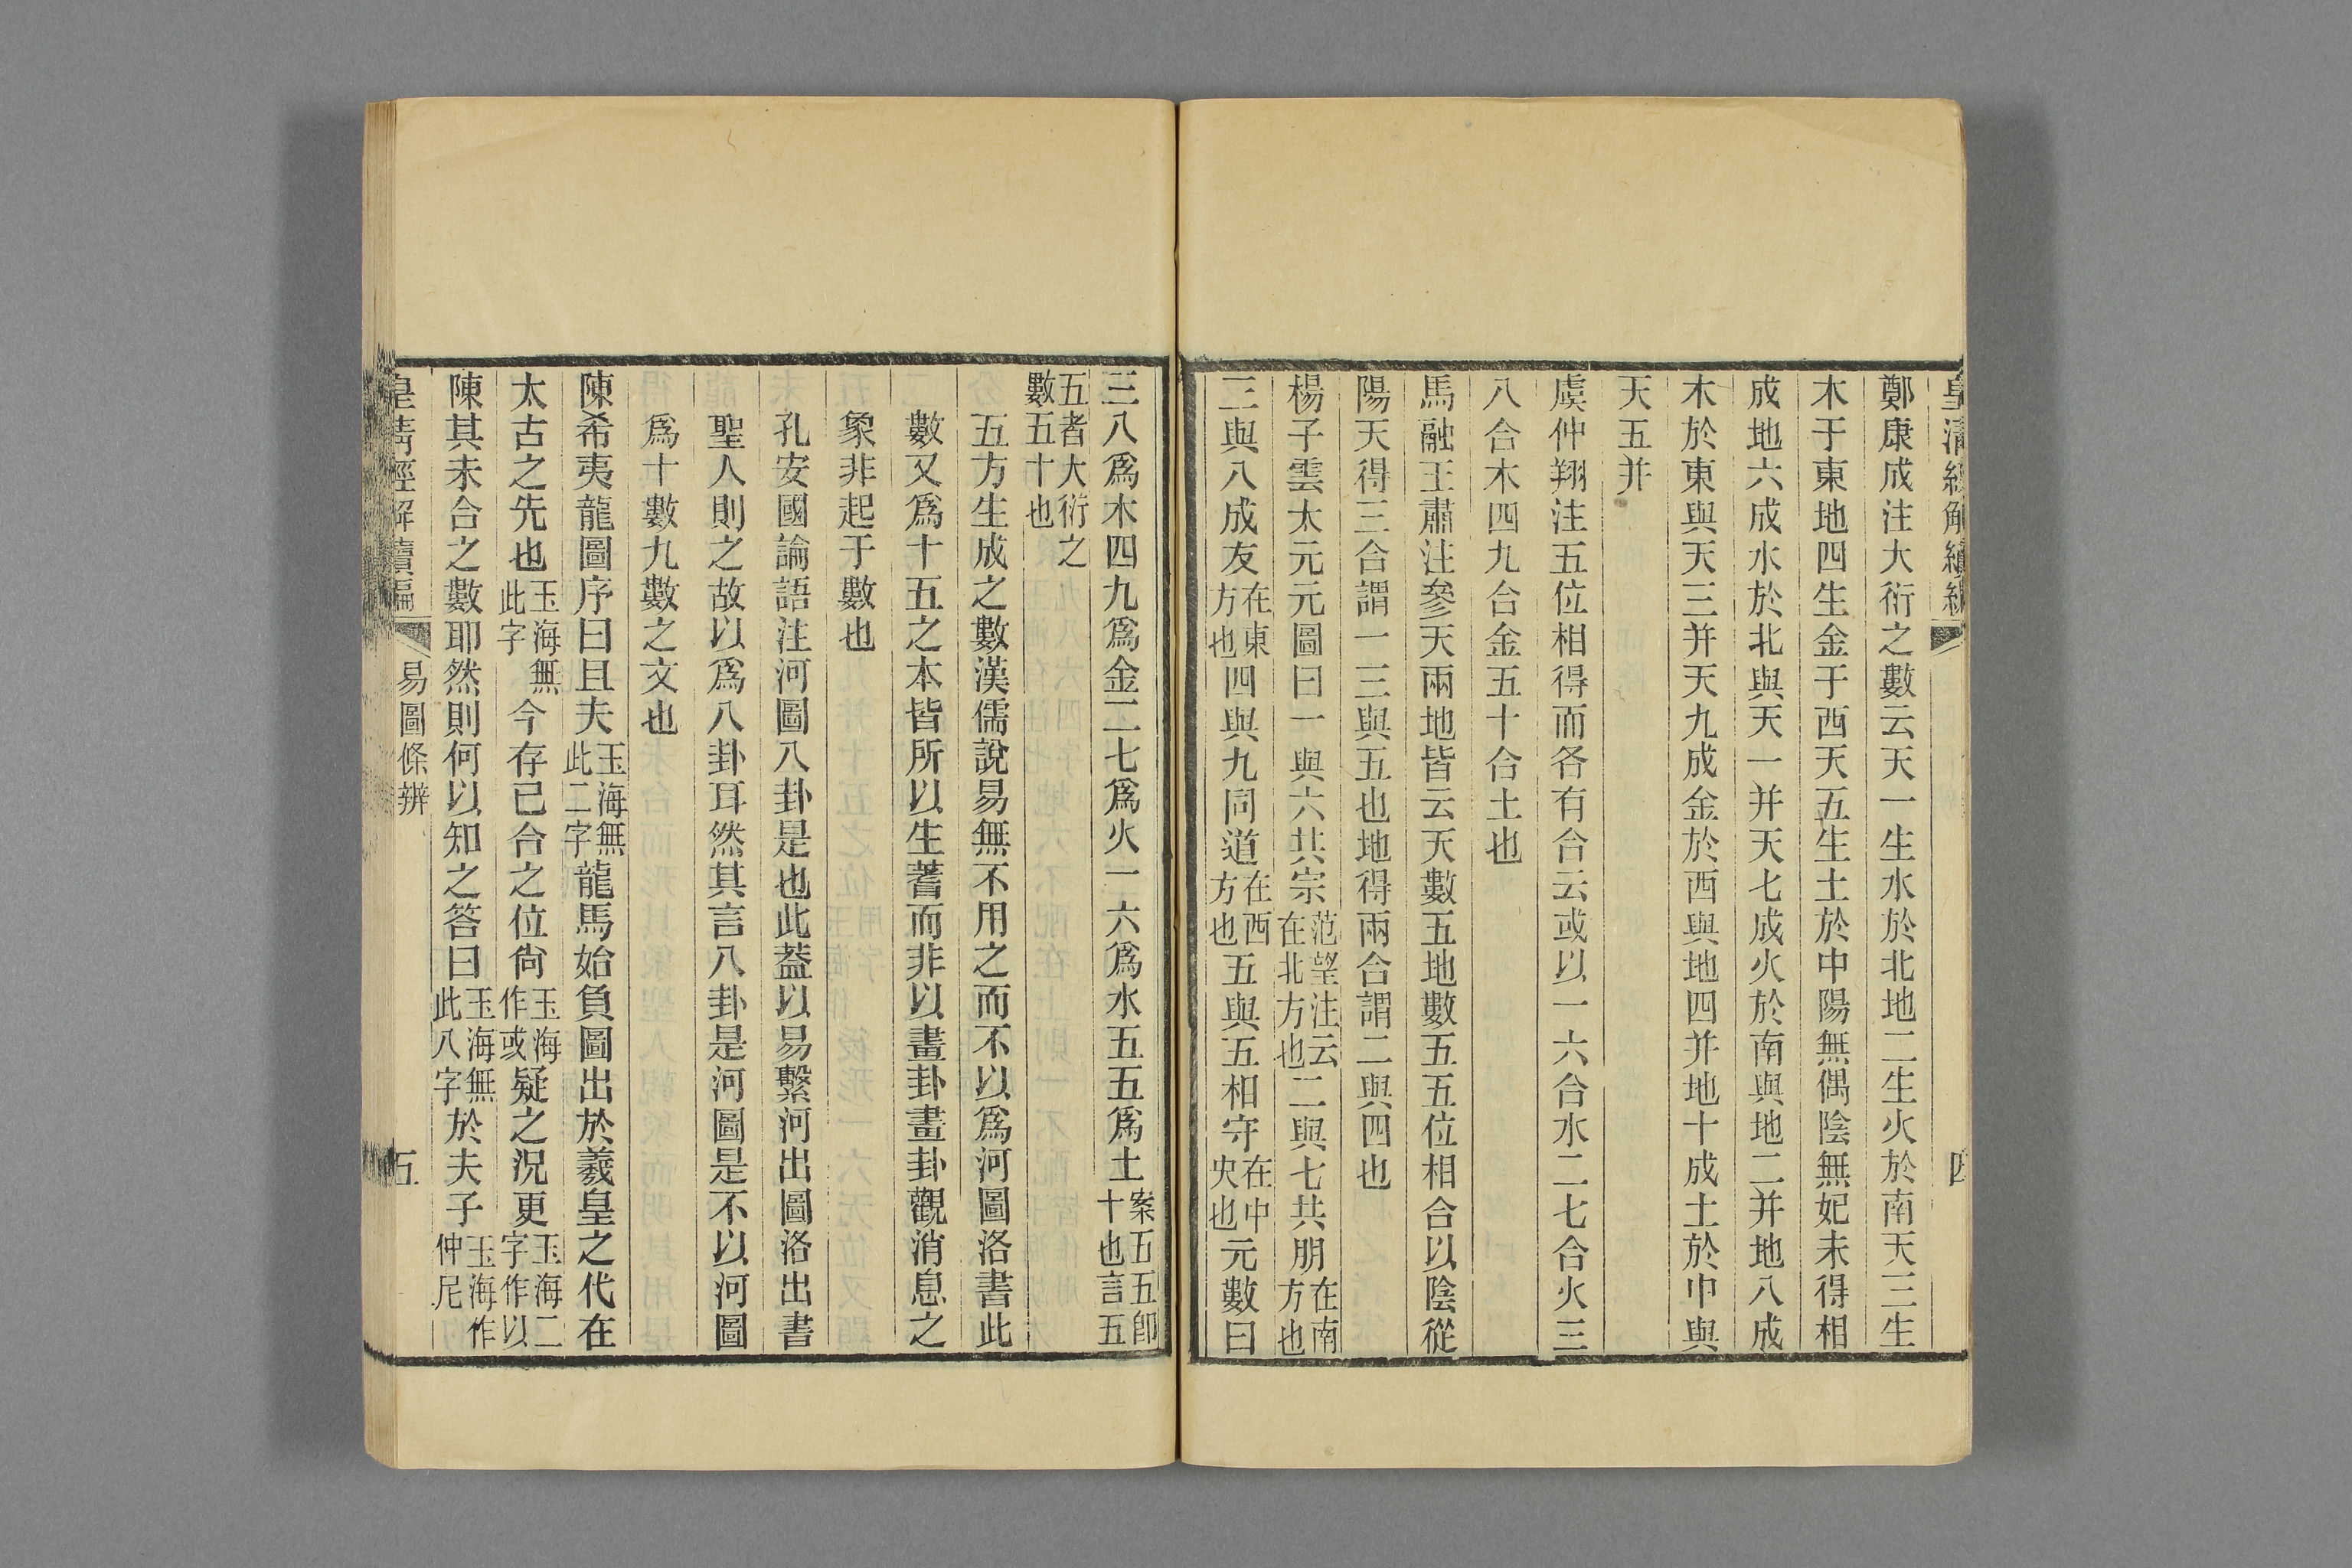 皇清經解續編
四
鄭康成注大衍之數云天一生水於北地二生火於南天三生
木于東地四生金于西天五生土於中陽無偶陰無妃未得相
成地六成水於北與天一并天七成火於南與地二并地八成
木於東與天三并天九成金於西與地四并地十成土於中與
天五并
虞仲翔注五位相得而各有合云或以一六合水二七合火三
八合木四九合金五十合土也
馬融王肅注參天兩地皆云天數五地數五五位相合以陰從
陽天得三合謂一三與五也地得兩合謂二與四也
楊子雲太元元圖曰一與六共宗范望注云在北方也二與七共朋在南方也
三與八成友在東方也四與九同道在西方也五與五相守在中央也元數曰
三八爲木四九爲金二七爲火一六爲水五五爲土案五五即十也言五
五者大衍之數五十也
五方生成之數漢儒說易無不用之而不以爲河圖洛書此
數又爲十五之本皆所以生蓍而非以畫卦畫卦觀消息之
象非起于數也
孔安國論語注河圖八卦是也此葢以易繫河出圖洛出書
聖人則之故以爲八卦耳然其言八卦是河圖是不以河圖
爲十數九數之文也
陳希夷龍圖序曰且夫玉海無此二字龍馬始負圖出於羲皇之代在
太古之先也玉海無此字今存已合之位尙玉海作或疑之況更玉海二字作以
陳其未合之數耶然則何以知之答曰玉海無此八字於夫子玉海作仲尼
皇清經解續編
易圖條辨
五